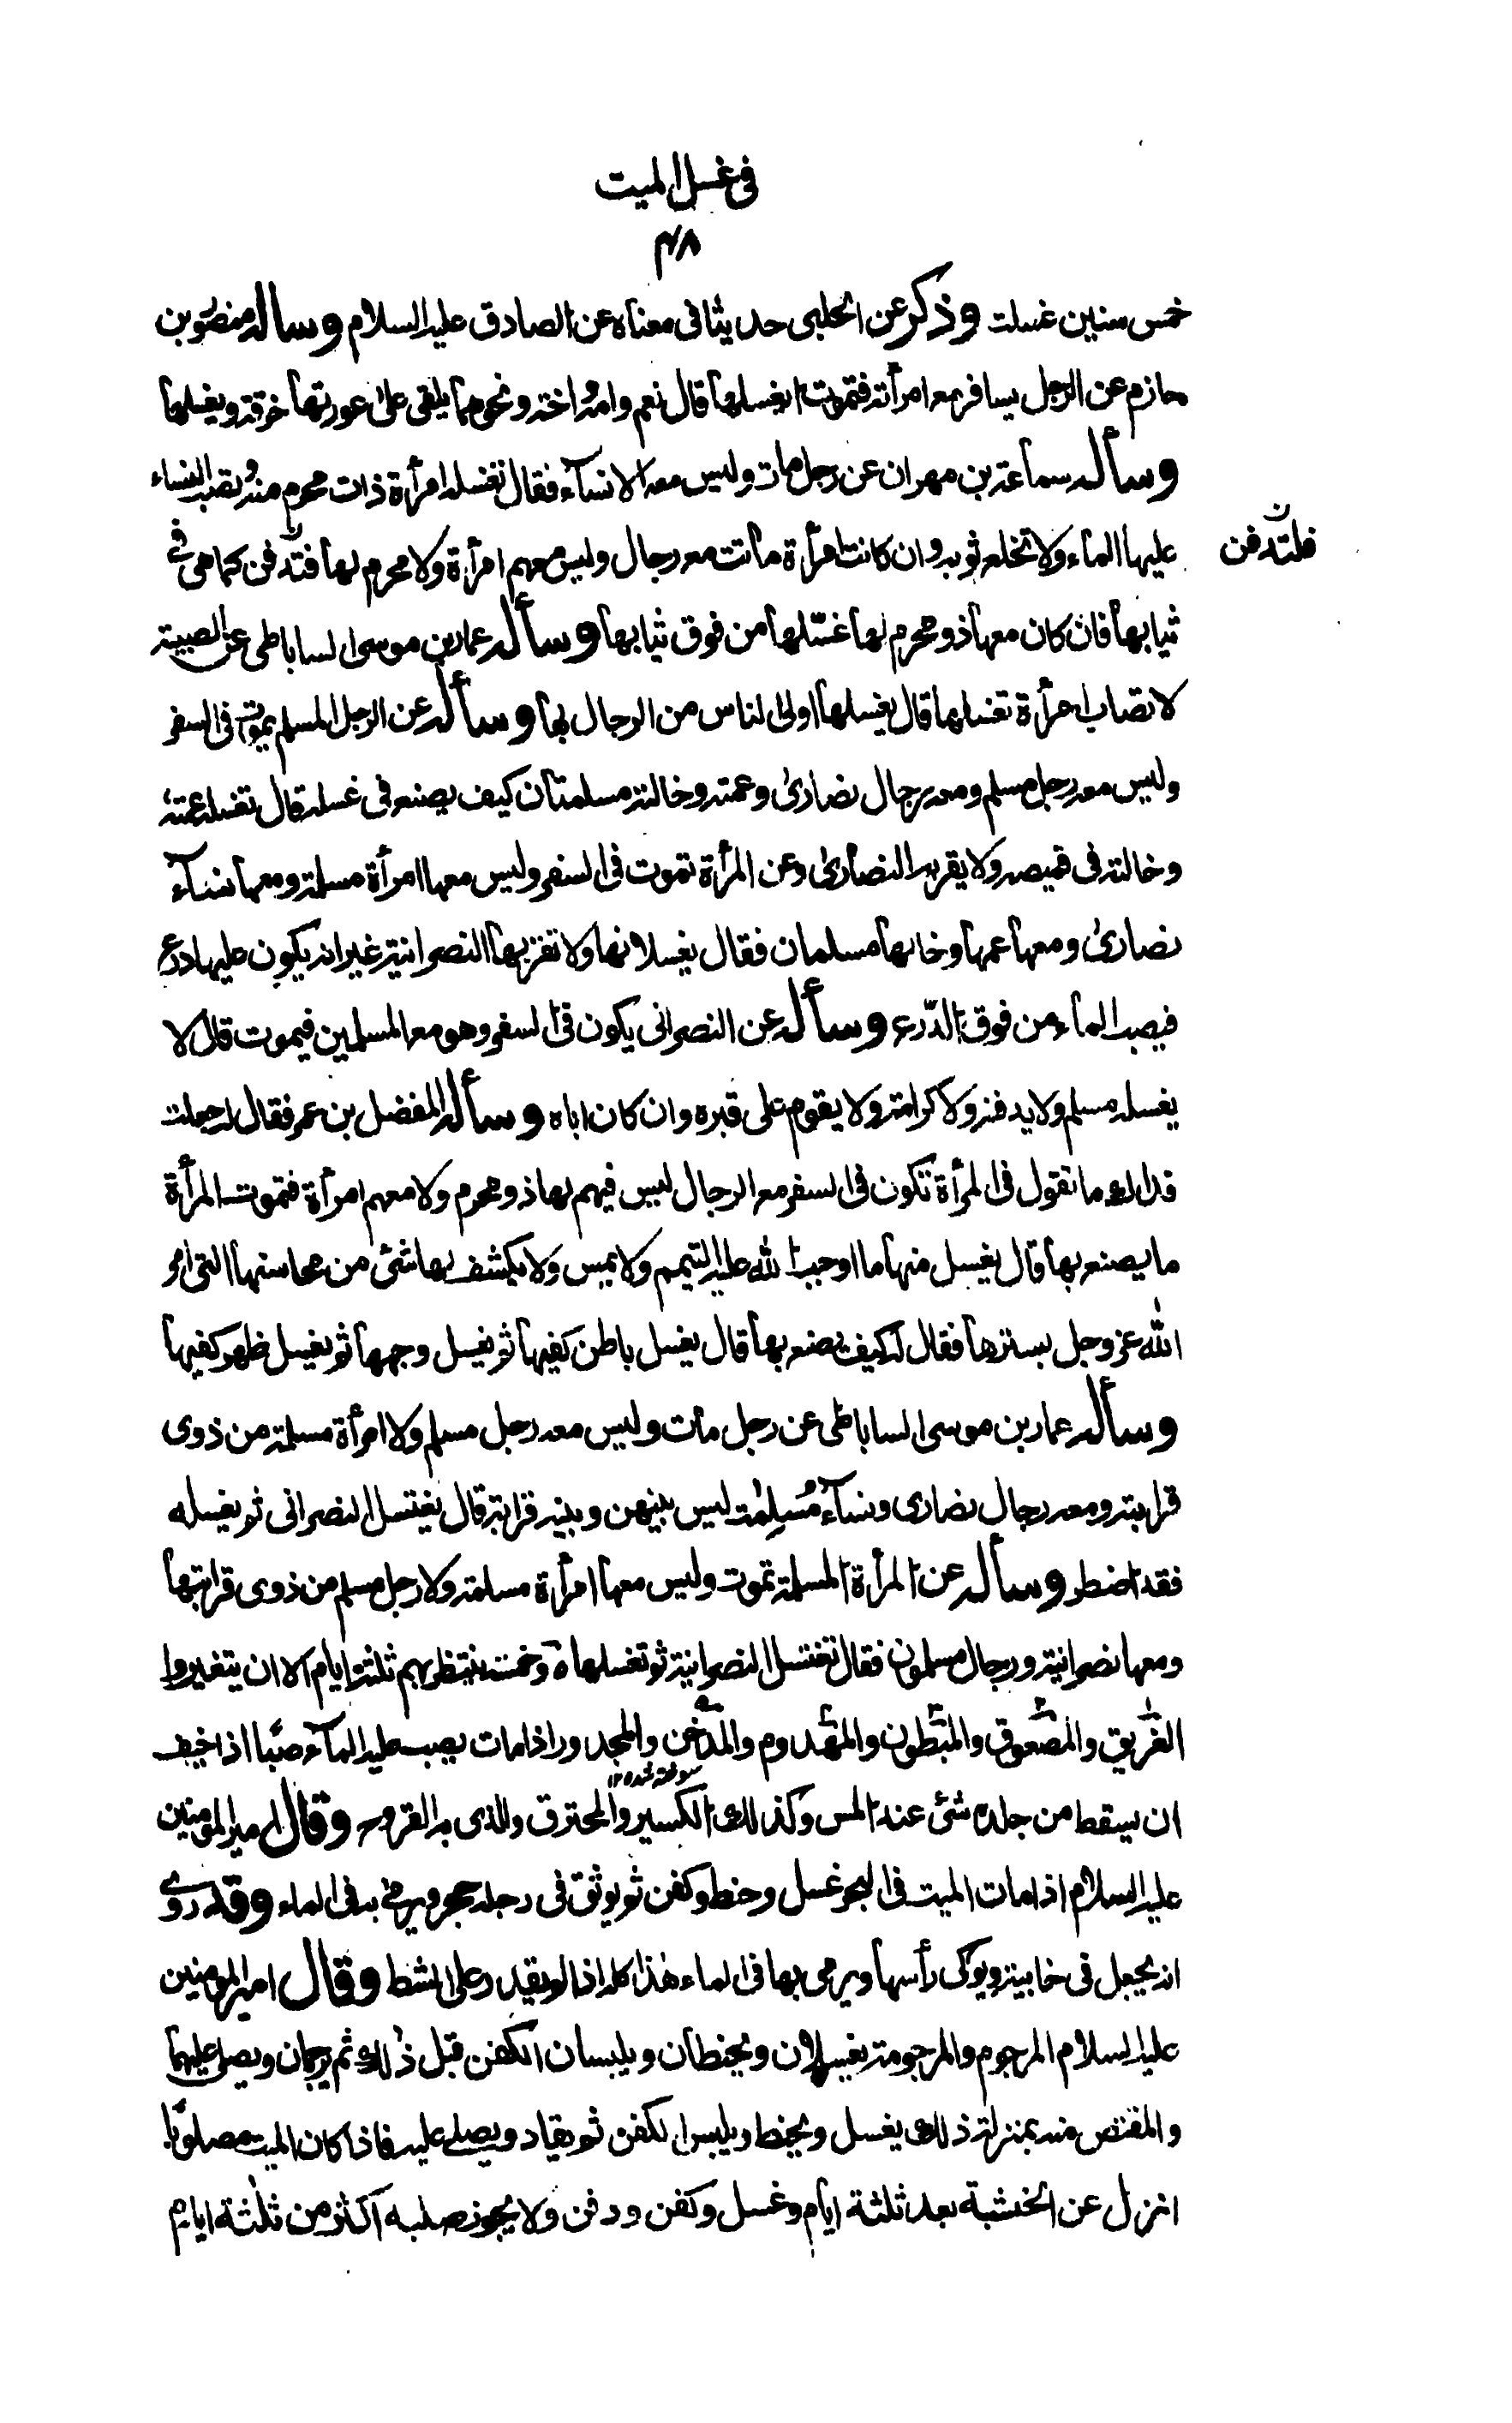 في غسل الميت
۴۸
خمس سنين غسلت وذكر عن الحلبى حديثا فى معناه عن الصادق عليه السلام وساله منصور بن
حازم عن الرجل يسافر مع امرأته فتموت ايغسلها قال نعم وامه واخته ونحوهما يلقى على عورتها خرقة ويغسلها
وسأله سماعة بن مهران عن رجل مات وليس معه الا نسآء فقال تغسله امرأة ذات محرم منه وتصب النساء
عليها الماء ولا تخلع ثوبه وان كانت امرأة ماتت مع رجال وليس معهم امرأة ولا محرم لها فتدفن كما هى فى
فلتدفن ن
ثيابها فان كان معها ذو محرم لها غسّلها من فوق ثيابها وسأله عمار بن موسى الساباطى عن الصبية
لا تصاب امرأة تغسلها قال يغسلها اولى الناس من الرجال بها وسأله عن الرجل المسلم يموت فى السفر
وليس معه رجل مسلم ومعه رجال نصارىٰ وعمته وخالته مسلمتان كيف يصنع فى غسله قال تغسله عمته
وخالته فى قميصه ولا يقربه النصارىٰ وعن المرأة تموت فى السفر وليس معها امرأة مسلمة ومعها نسآء
نصارىٰ ومعها عمها وخالها مسلمان فقال يغسلانها ولا تقربها النصرانية غير انه يكون عليها درع
فيصب الماء من فوق الدّرع وسأله عن النصرانى يكون فى السفر وهو مع المسلمين فيموت قال لا
يغسله مسلم ولا يدفنه ولا كرامة ولا يقوم على قبره وان كان اباه وسأله المفضل بن عمر فقال له جعلت
فداك ما تقول فى المرأة تكون فى السفر مع الرجال ليس فيهم لها ذو محرم ولا معهم امرأة فتموت المرأة
ما يصنع بها قال يغسل منها ما اوجب الله عليه التيمم ولا يمس ولا يكشف لها شئ من محاسنها التى امر
الله عز وجل بسترها فقال له كيف يصنع بها قال يغسل باطن كفيها ثم يغسل وجهها ثم يغسل ظهر كفيها
وسأله عمار بن موسى الساباطى عن رجل مات وليس معه رجل مسلم ولا امرأة مسلمة من ذوى
قرابته ومعه رجال نصارى ونسآء مُسلِمٰت ليس بينهن وبينه قرابة قال يغتسل النصرانى ثم يغسله
فقد اضطر وسأله عن المرأة المسلمة تموت وليس معها امرأة مسلمة ولا رجل مسلم من ذوى قرابتها
ومعها نصرانية ورجال مسلمون فقال تغتسل النصرانية ثم تغسلها وخمسة ينتظر بهم ثلثة ايام الا ان يتغيروا
الغريق والمصعوق والمبطون والمهدوم والمدخن والمجدور اذا مات يصب عليه المآء صبًّا اذا خيف
سوخته شده ۱۲
ان يسقط من جلده شئ عند المس وكذلك الكسير والمحترق والذى به القروح وقال امير المومنين
عليه السلام اذا مات الميت فى البحر غسل وحنط وكفن ثم يوثق فى رجله حجر ويرمى به فى الماء وقد روى
انه يجعل فى خابية ويوكى رأسها ويرمى بها فى الماء هٰذا كله اذا لم يقدر على الشط وقال امير المومنين
عليه السلام المرجوم والمرجومة يغسلان ويحنطان ويلبسان الكفن قبل ذٰلك ثم يرجمان ويصلى عليهما
والمقتص منه بمنزلة ذلك يغسل ويحنط ويلبس الكفن ثم يقاد ويصلى عليه فاذا كان الميت مصلوبًا
انزل عن الخشبة بعد ثلثة ايام وغسل وكفن ودفن ولا يجوز صلبه اكثر من ثلثة ايام